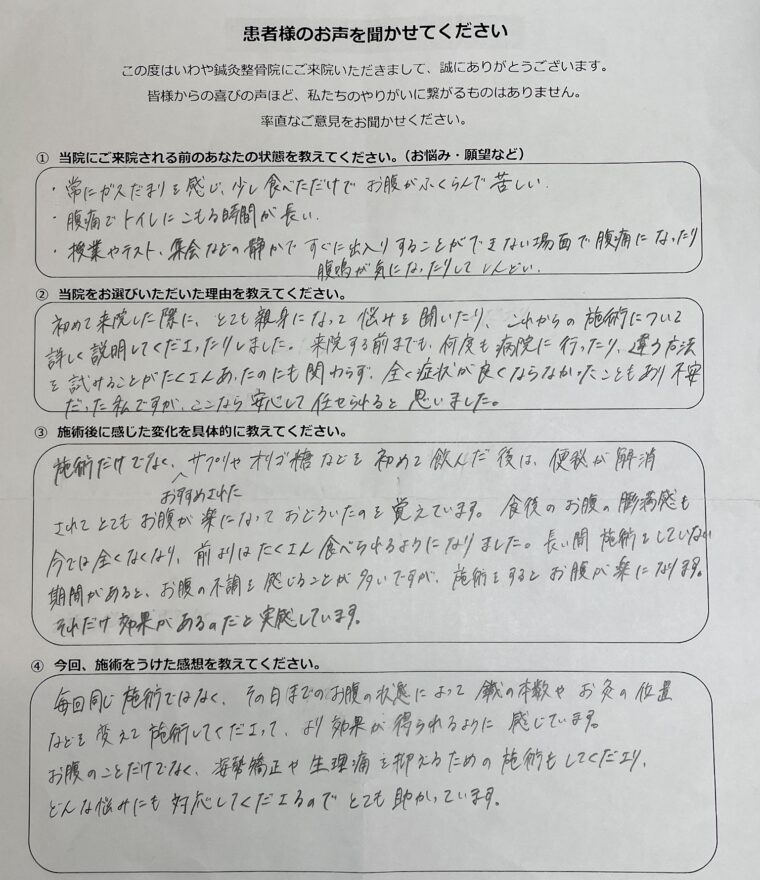 患者様のお声を聞かせてください
この度はいわや鍼灸整骨院にご来院いただきまして、誠にありがとうございます。
皆様からの喜びの声ほど、私たちのやりがいに繋がるものはありません。
率直なご意見をお聞かせください。
① 当院にご来院される前のあなたの状態を教えてください。（お悩み・願望など）
・常にガスだまりを感じ、少し食べただけで お腹がふくらんで苦しい.
・腹痛でトイレにこもる時間が長い.
・授業やテスト、集会などの静かで すぐに出入りすることができない場面で腹痛になったり
腹鳴が気になったりしてしんどい.
② 当院をお選びいただいた理由を教えてください。
初めて来院した際に、とても親身になって悩みを聞いたり、これからの施術について
詳しく説明してくださったりしました。来院する前までも、何度も病院に行ったり、違う方法
を試することがたくさんあったのにも関わらず、全く症状が良くならなかったこともあり不安
だった私ですが、ここなら安心して任せられると思いました。
③ 施術後に感じた変化を具体的に教えてください。
施術だけでなく、サプリやオリゴ糖などを初めて飲んだ後は、便秘が解消
おすすめされた
されてとてもお腹が楽になっておどろいたのを覚えています。食後のお腹の膨満感も
今では全くなくなり、前よりはたくさん食べられるようになりました。長い間施術をしていない
期間があると、お腹の不調を感じることが多いですが、施術をするとお腹が楽になります。
それだけ効果があるのだと実感しています。
④ 今回、施術をうけた感想を教えてください。
毎回同じ施術ではなく、その日までのお腹の状態によって鍼の本数やお灸の位置
などを変えて施術してくださって、より効果が得られるように感じています。
お腹のことだけでなく、姿勢矯正や生理痛を抑えるための施術もしてくださり、
どんな悩みにも対応してくださるのでとても助かっています。